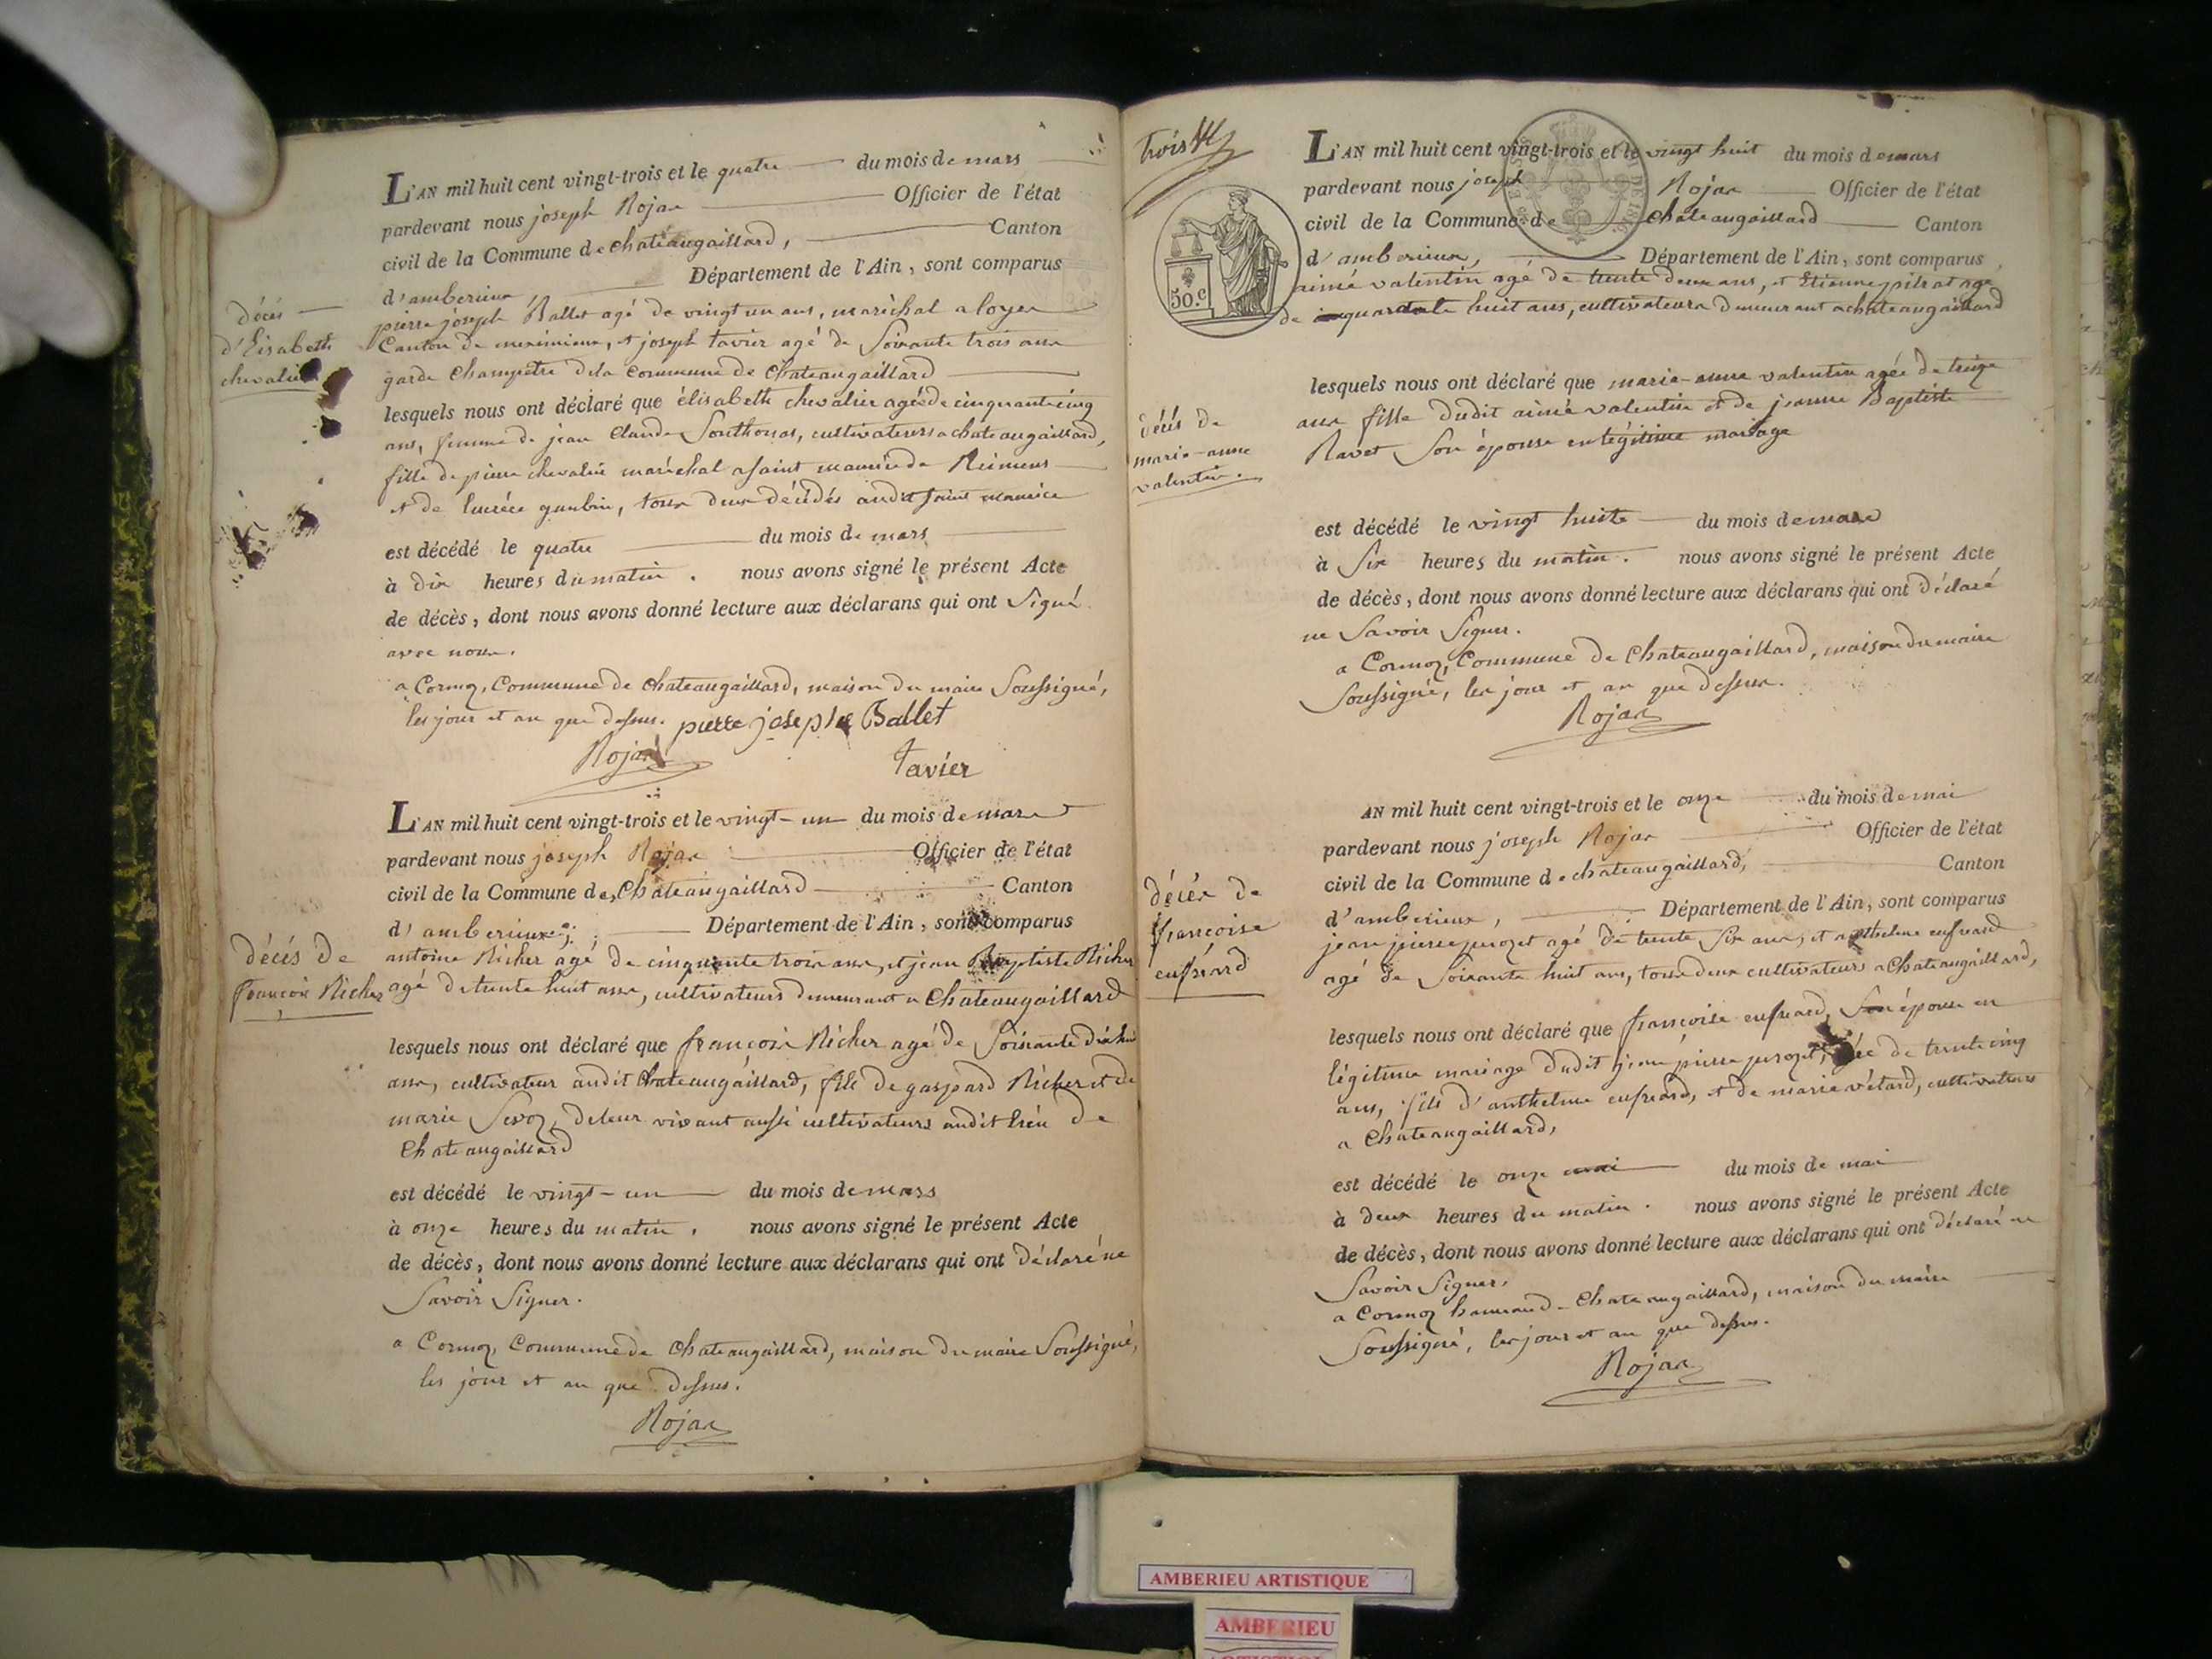 L'AN mil huit cent vingt-trois et le quatre du mois de mars
pardevant nous joseph Rojax Officier de l'état
civil de la Commune de chateaugaillard, Canton
d'amberieux Département de l'Ain, sont comparus
pierre joseph Ballet agé de vingt un ans, maréchal a loyer
Canton de meximieux, et joseph tavier agé de Soixante trois ans
garde Champetre dela commune de Chateaugaillard
lesquels nous ont déclaré que élisabeth chevalier agée de cinquante cinq
ans, femme de jean Claude Southonax, cultivateurs a chateaugaillard,
fille de pierre chevalier maréchal a saint maurice de Reimens
et de lucrèce, tous deux décédés audit saint maurice
est décédé le quatre du mois de mars
à dix heures du matin. nous avons signé le présent Acte
de décès, dont nous avons donné lecture aux déclarans qui ont Signé
avec nous.
a Cormoz, Commune de chateaugaillard, maison du maire Soussigné,
les jour et an que dessus. pierre joseph Ballet
Rojax Tavier
décés
d'Elisabeth
chevalier
L'AN mil huit cent vingt-trois et le vingt-un du mois de mars
pardevant nous joseph Rojax Officier de l'état
civil de la Commune de Chateaugaillard Canton
d'amberieux; Département de l'Ain, sont comparus
antoine Richer agé de cinquante trois ans, et jean Baptiste Richer
agé de trente huit ans, cultivateurs demeurant a Chateaugaillard
lesquels nous ont déclaré que françois Richer agé de Soixante dix huit
ans, cultivateur audit Chateaugaillard, fils de gaspard Richer et de
marie Sevoz, deleur vivant aussi cultivateurs audit lieu de
Chateaugaillard
est décédé le vingt-un du mois de mars
à onze heures du matin. nous avons signé le présent Acte
de décès, dont nous avons donné lecture aux déclarans qui ont déclaré ne
Savoir Signer.
a Cormoz, Commune de Chateaugaillard, maison du maire Soussigné,
les jour et an que dessus.
Rojax
décés de
françois Richer
trois
50.c
L'AN mil huit cent vingt-trois et le vingt huit du mois de mars
pardevant nous joseph Rojax Officier de l'état
civil de la Commune de Chateaugaillard Canton
d'amberieux, Département de l'Ain, sont comparus
aimé valentin agé de trente deux ans, et Etienne pitrat agé
de quarante huit ans, cultivateurs demeurant a chateaugaillard
lesquels nous ont déclaré que marie-anne valentin agée de treize
ans fille dudit aimé valentin et de jeanne Baptiste
Ravet Son épouse en légitime mariage
est décédé le vingt huit du mois de mars
à Six heures du matin. nous avons signé le présent Acte
de décès, dont nous avons donné lecture aux déclarans qui ont déclaré
ne Savoir Signer.
a Cormoz, Commune de Chateaugaillard, maison du maire
Soussigné, les jour et an que dessus.
Rojax
décés de
marie-anne
valentin.
AN mil huit cent vingt-trois et le onze du mois de mai
pardevant nous joseph Rojax Officier de l'état
civil de la Commune de chateaugaillard, Canton
d'amberieux, Département de l'Ain, sont comparus
jean pierre perozet agé de trente Six ans, et anthelme eufreard
agé de Soixante huit ans, tous deux cultivateurs a Chateaugaillard,
lesquels nous ont déclaré que françoise eufreard, Son épouse en
légitime mariage dudit jean pierre perozet, agée de trente cinq
ans, fils d'anthelme eufreard, et de marie vétard, cultivateurs
a Chateaugaillard,
est décédé le onze mai du mois de mai
à deux heures du matin. nous avons signé le présent Acte
de décès, dont nous avons donné lecture aux déclarans qui ont déclaré ne
Savoir Signer.
a Cormoz Chateaugaillard, maison du maire
Soussigné, les jour et an que dessus.
Rojax
décés de
françoise
eufréard
AMBERIEU ARTISTIQUE
AMBERIEU
ARTISTIQUE